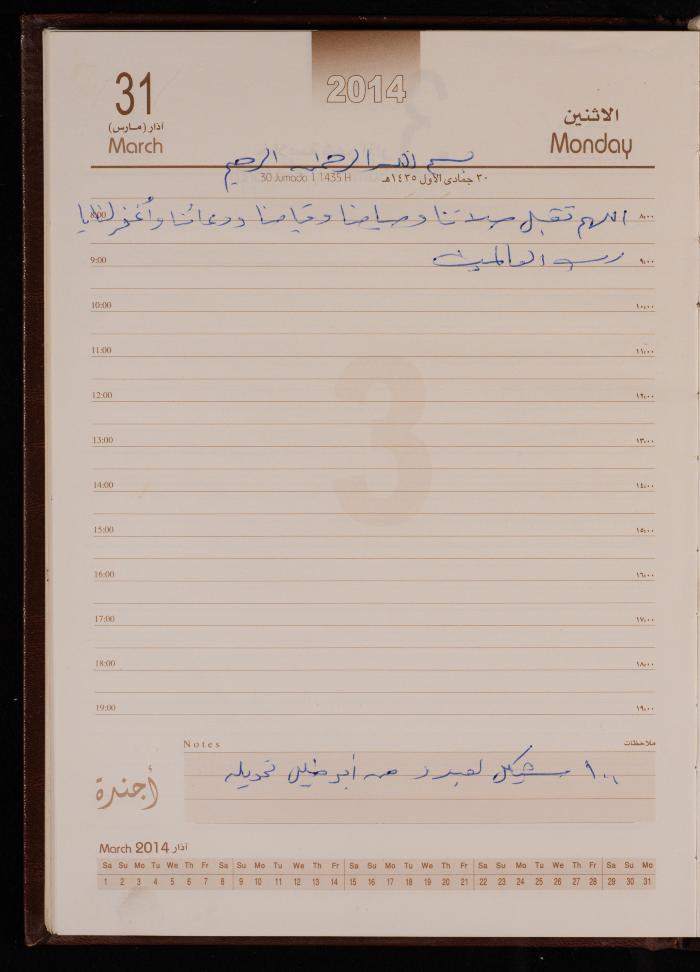 2014
31
آذار (مارس)
March
الاثنين
Monday
بسم الله الرحمن الرحيم
30 Jumada I 1435 H
٣٠ جمادى الأول ١٤٣٥هـ
8:00 ٨:٠٠
اللهم تقبل صلاتنا وصيامنا وقيامنا ودعائنا وأغفر لنا يا
9:00 ٩:٠٠
رب العالمين
10:00 ١٠:٠٠
11:00 ١١:٠٠
12:00 ١٢:٠٠
13:00 ١٣:٠٠
3
14:00 ١٤:٠٠
15:00 ١٥:٠٠
16:00 ١٦:٠٠
17:00 ١٧:٠٠
18:00 ١٨:٠٠
19:00 ١٩:٠٠
Notes ملاحظات
١٠٠ شيكل من أبو تحويله
أجندة
March 2014 آذار
Sa Su Mo Tu We Th Fr Sa Su Mo Tu We Th Fr Sa Su Mo Tu We Th Fr Sa Su Mo Tu We Th Fr Sa Su Mo
1 2 3 4 5 6 7 8 9 10 11 12 13 14 15 16 17 18 19 20 21 22 23 24 25 26 27 28 29 30 31